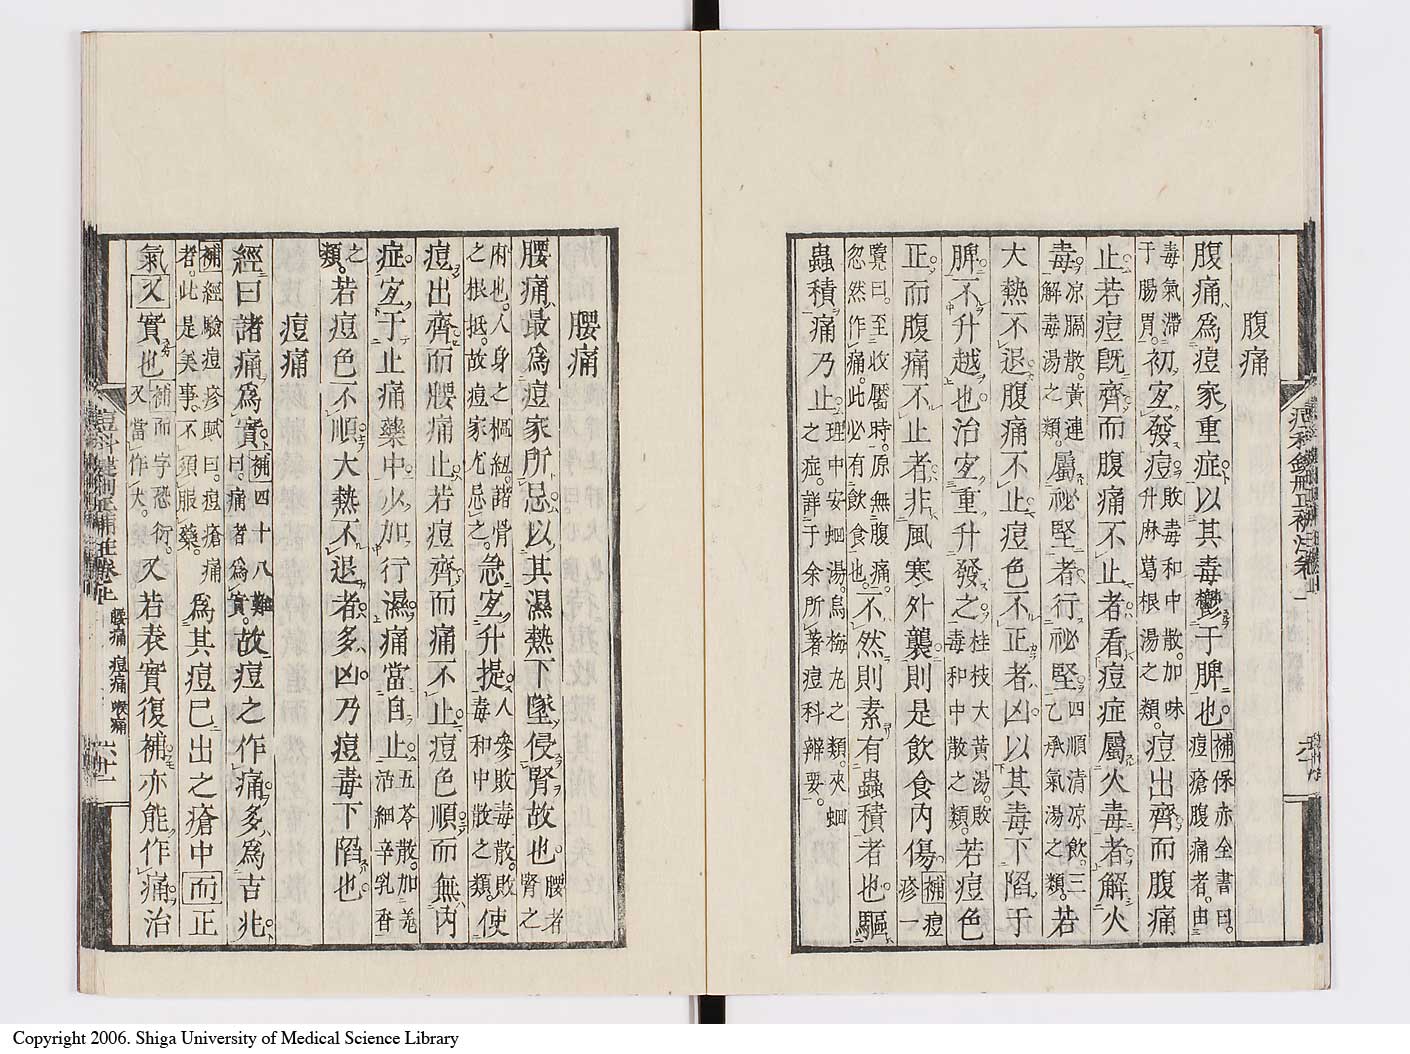 腹痛
腹痛爲痘家重症以其毒鬱于脾也補保赤全書曰。痘瘡腹痛者。由
毒氣滯于腸胃。初宜發痘敗毒和中散。加味升麻葛根湯之類。痘出齊而腹痛
止若痘既齊而腹痛不止者看痘症屬火毒者解火
毒凉膈散。黃連解毒湯之類。屬祕堅者行祕堅四順清凉飲。三乙承氣湯之類。若
大熱不退腹痛不止痘色不正者凶以其毒下陷于
脾不升越也治宜重升發之桂枝大黃湯。敗毒和中散之類。若痘色
正而腹痛不止者非風寒外襲則是飲食內傷補痘疹一
覽曰。至收靨時。原無腹痛。忽然作痛。此必有飲食也。不然則素有蟲積者也驅
蟲積痛乃止理中安蛔湯。烏梅丸之類。夾蛔之症。詳于余所著痘科辨要。
腰痛
腰痛最爲痘家所忌以其濕熱下墜侵腎故也腰者腎之
府也。人身之樞紐。諸骨之根抵。故痘家尤忌之。急宜升提人參敗毒散。敗毒和中散之類。使
痘出齊而腰痛止若痘齊而痛不止痘色順而無內
症宜于止痛藥中以加行濕痛當自止五苓散。加羌活細辛乳香
之類。若痘色不順大熱不退者多凶乃痘毒下陷也
痘痛
經曰諸痛爲實補四十八難曰。痛者爲實。故痘之作痛多爲吉兆
補經驗痘疹賦曰。痘瘡痛者。此是美事。不須服藥。爲其痘已出之瘡中而正
氣又實也補而字恐衍。又當作火。又若表實復補亦能作痛治
腰痛 痘痛 喉痛